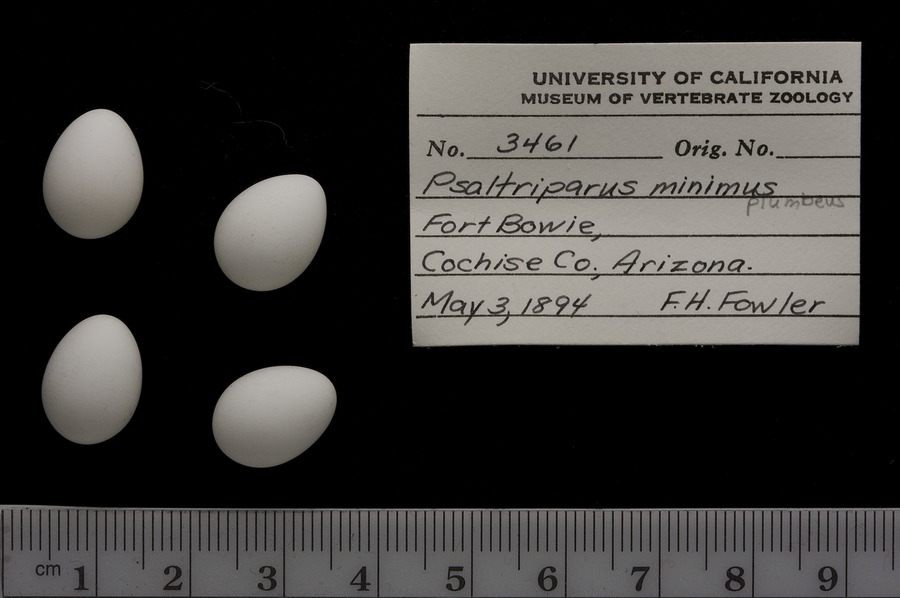 UNIVERSITY OF CALIFORNIA
MUSEUM OF VERTEBRATE ZOOLOGY
No. 3461 Orig. No.
Psaltriparus minimus
plumbeus
Fort Bowie,
Cochise Co., Arizona.
May 3, 1894 F.H. Fowler
cm 1 2 3 4 5 6 7 8 9